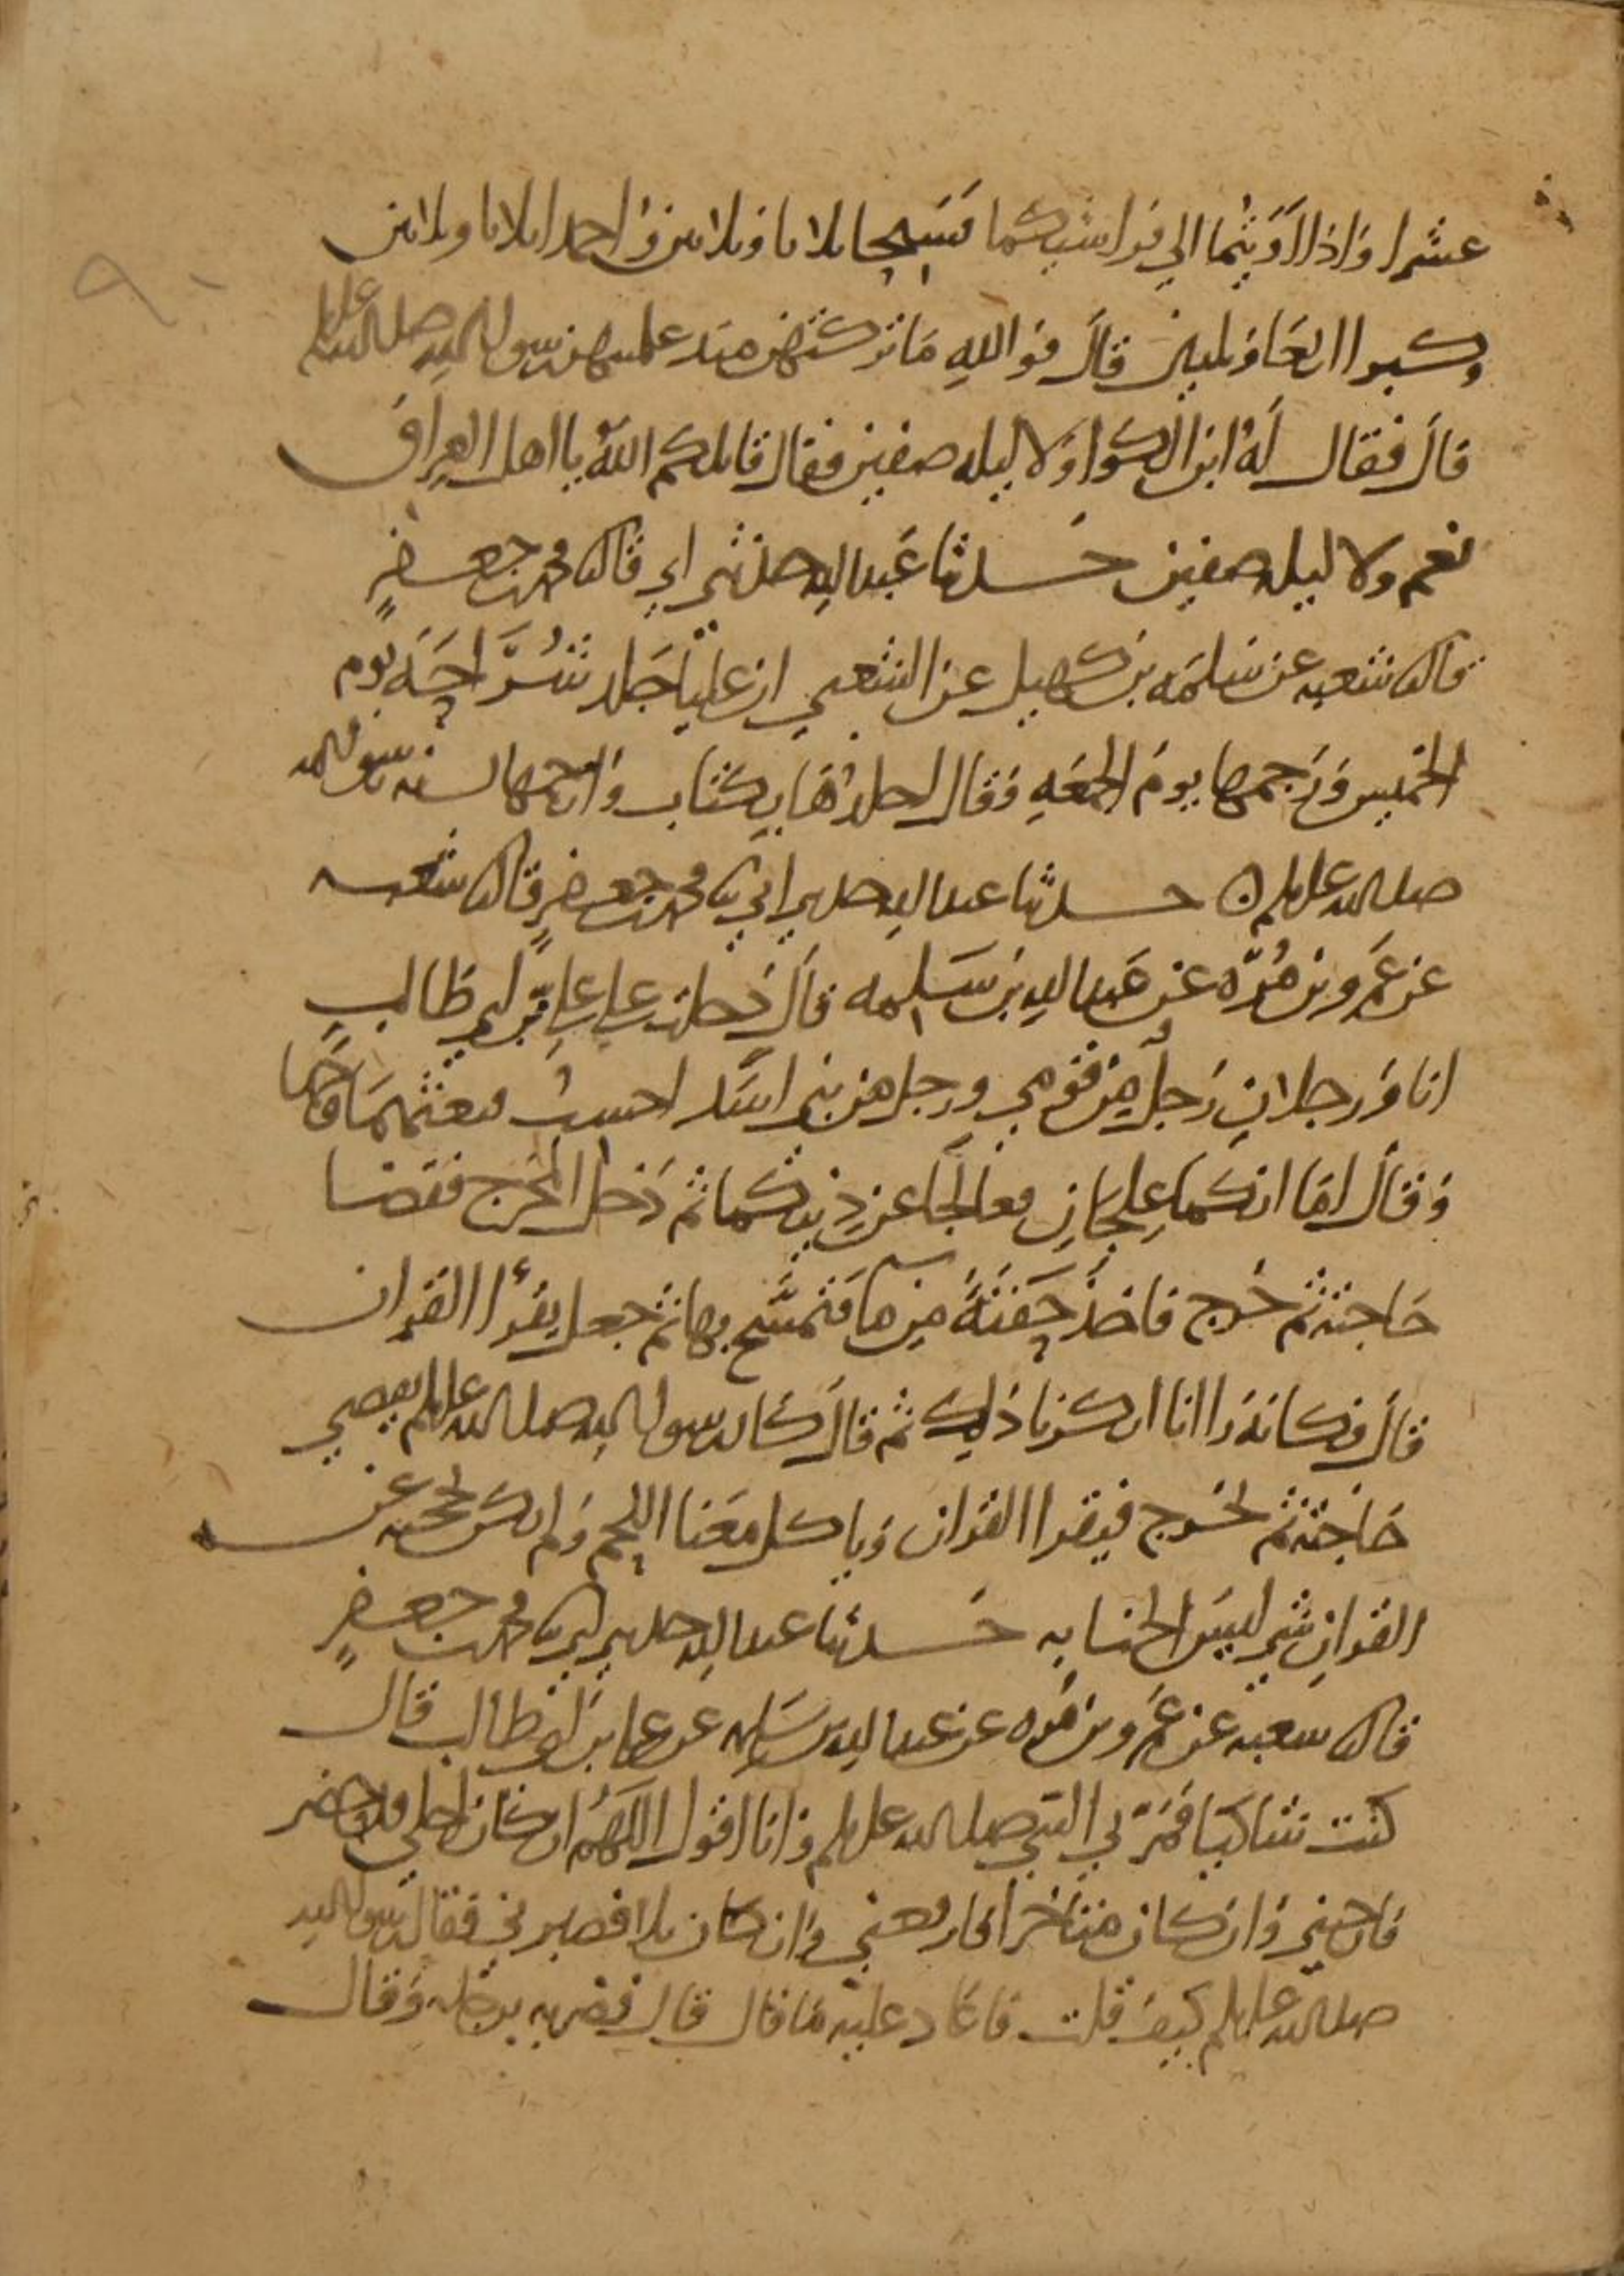 عشرا واذا اويتما الي فراشكما فسبحا ثلاثا وثلاثين واحمدا ثلاثا وثلاثين
وكبرا اربعا وثلثين قال فوالله ما تركتهن منذ علمنيهن رسول الله صلى الله عليه وسلم
قال فقال له ابن الكوا ولا ليله صفين فقال قاتلكم الله يا اهل العراق
نعم ولا ليله صفين حدثنا عبد الله حدثني ابي قال ثنا محمد بن جعفر
قال ثنا شعبه عن سلمه بن كهيل عن الشعبي ان عليا جلد شراحه يوم
الخميس ورجمها يوم الجمعه وقال اجلدها بكتاب وارجمها بسنه رسول الله
صلى الله عليه وسلم حدثنا عبد الله حدثني ابي ثنا محمد بن جعفر قال ثنا شعبه
عن عمرو بن مره عن عبد الله بن سلمه قال دخلت علي علي بن ابي طالب
انا ورجلان رجل من قومي ورجل من بني اسد احسب فبعثهما وجها
وقال اما انكما علجان فعالجا عن دينكما ثم دخل المخرج فقضا
حاجته ثم خرج فاخذ حفنة من ما فتمسح بها ثم جعل يقرأ القران
قال فكانه راانا انكرنا ذلك ثم قال كان رسول الله صلى الله عليه وسلم يقضي
حاجته ثم يخرج فيقرا القران وياكل معنا اللحم ولم يكن يحجبه عن
القران شي ليس الجنابه حدثنا عبد الله حدثني ابي ثنا محمد بن جعفر
قال ثنا شعبه عن عمرو بن مره عن عبد الله بن سلمه عن علي بن ابي طالب قال
كنت شاكيا فمر بي النبي صلى الله عليه وسلم وانا اقول اللهم ان كان اجلي قد حضر
فارحني وان كان متاخرا فارفعني وان كان بلا فصبرني فقال رسول الله
صلى الله عليه وسلم كيف قلت فاعاد عليه ما قال قال فضربه برجله وقال